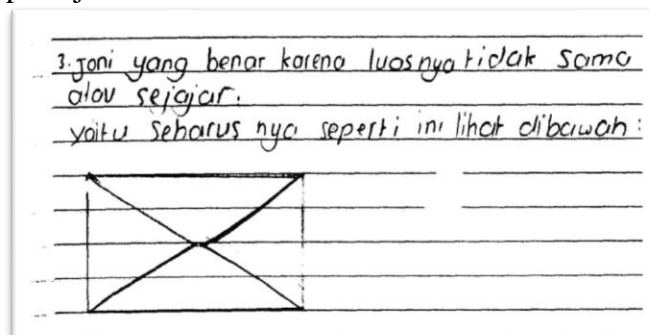 3. Joni yang benar karena luasnya tidak sama
atau sejajar.
yaitu seharus nya seperti ini lihat dibawah :